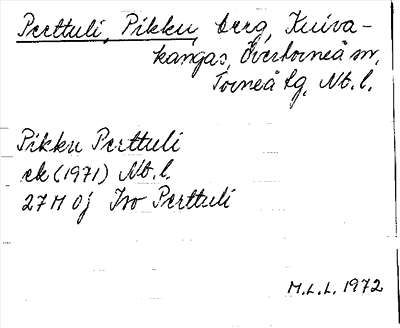 Perttuli, Pikku, berg, Kuiva-
kangas, Övertorneå sn,
Torneå tg, Nb. l.
Pikku Perttuli
ek (1971) Nb. l.
27 M 0j Iso Perttuli
M.L.L. 1972